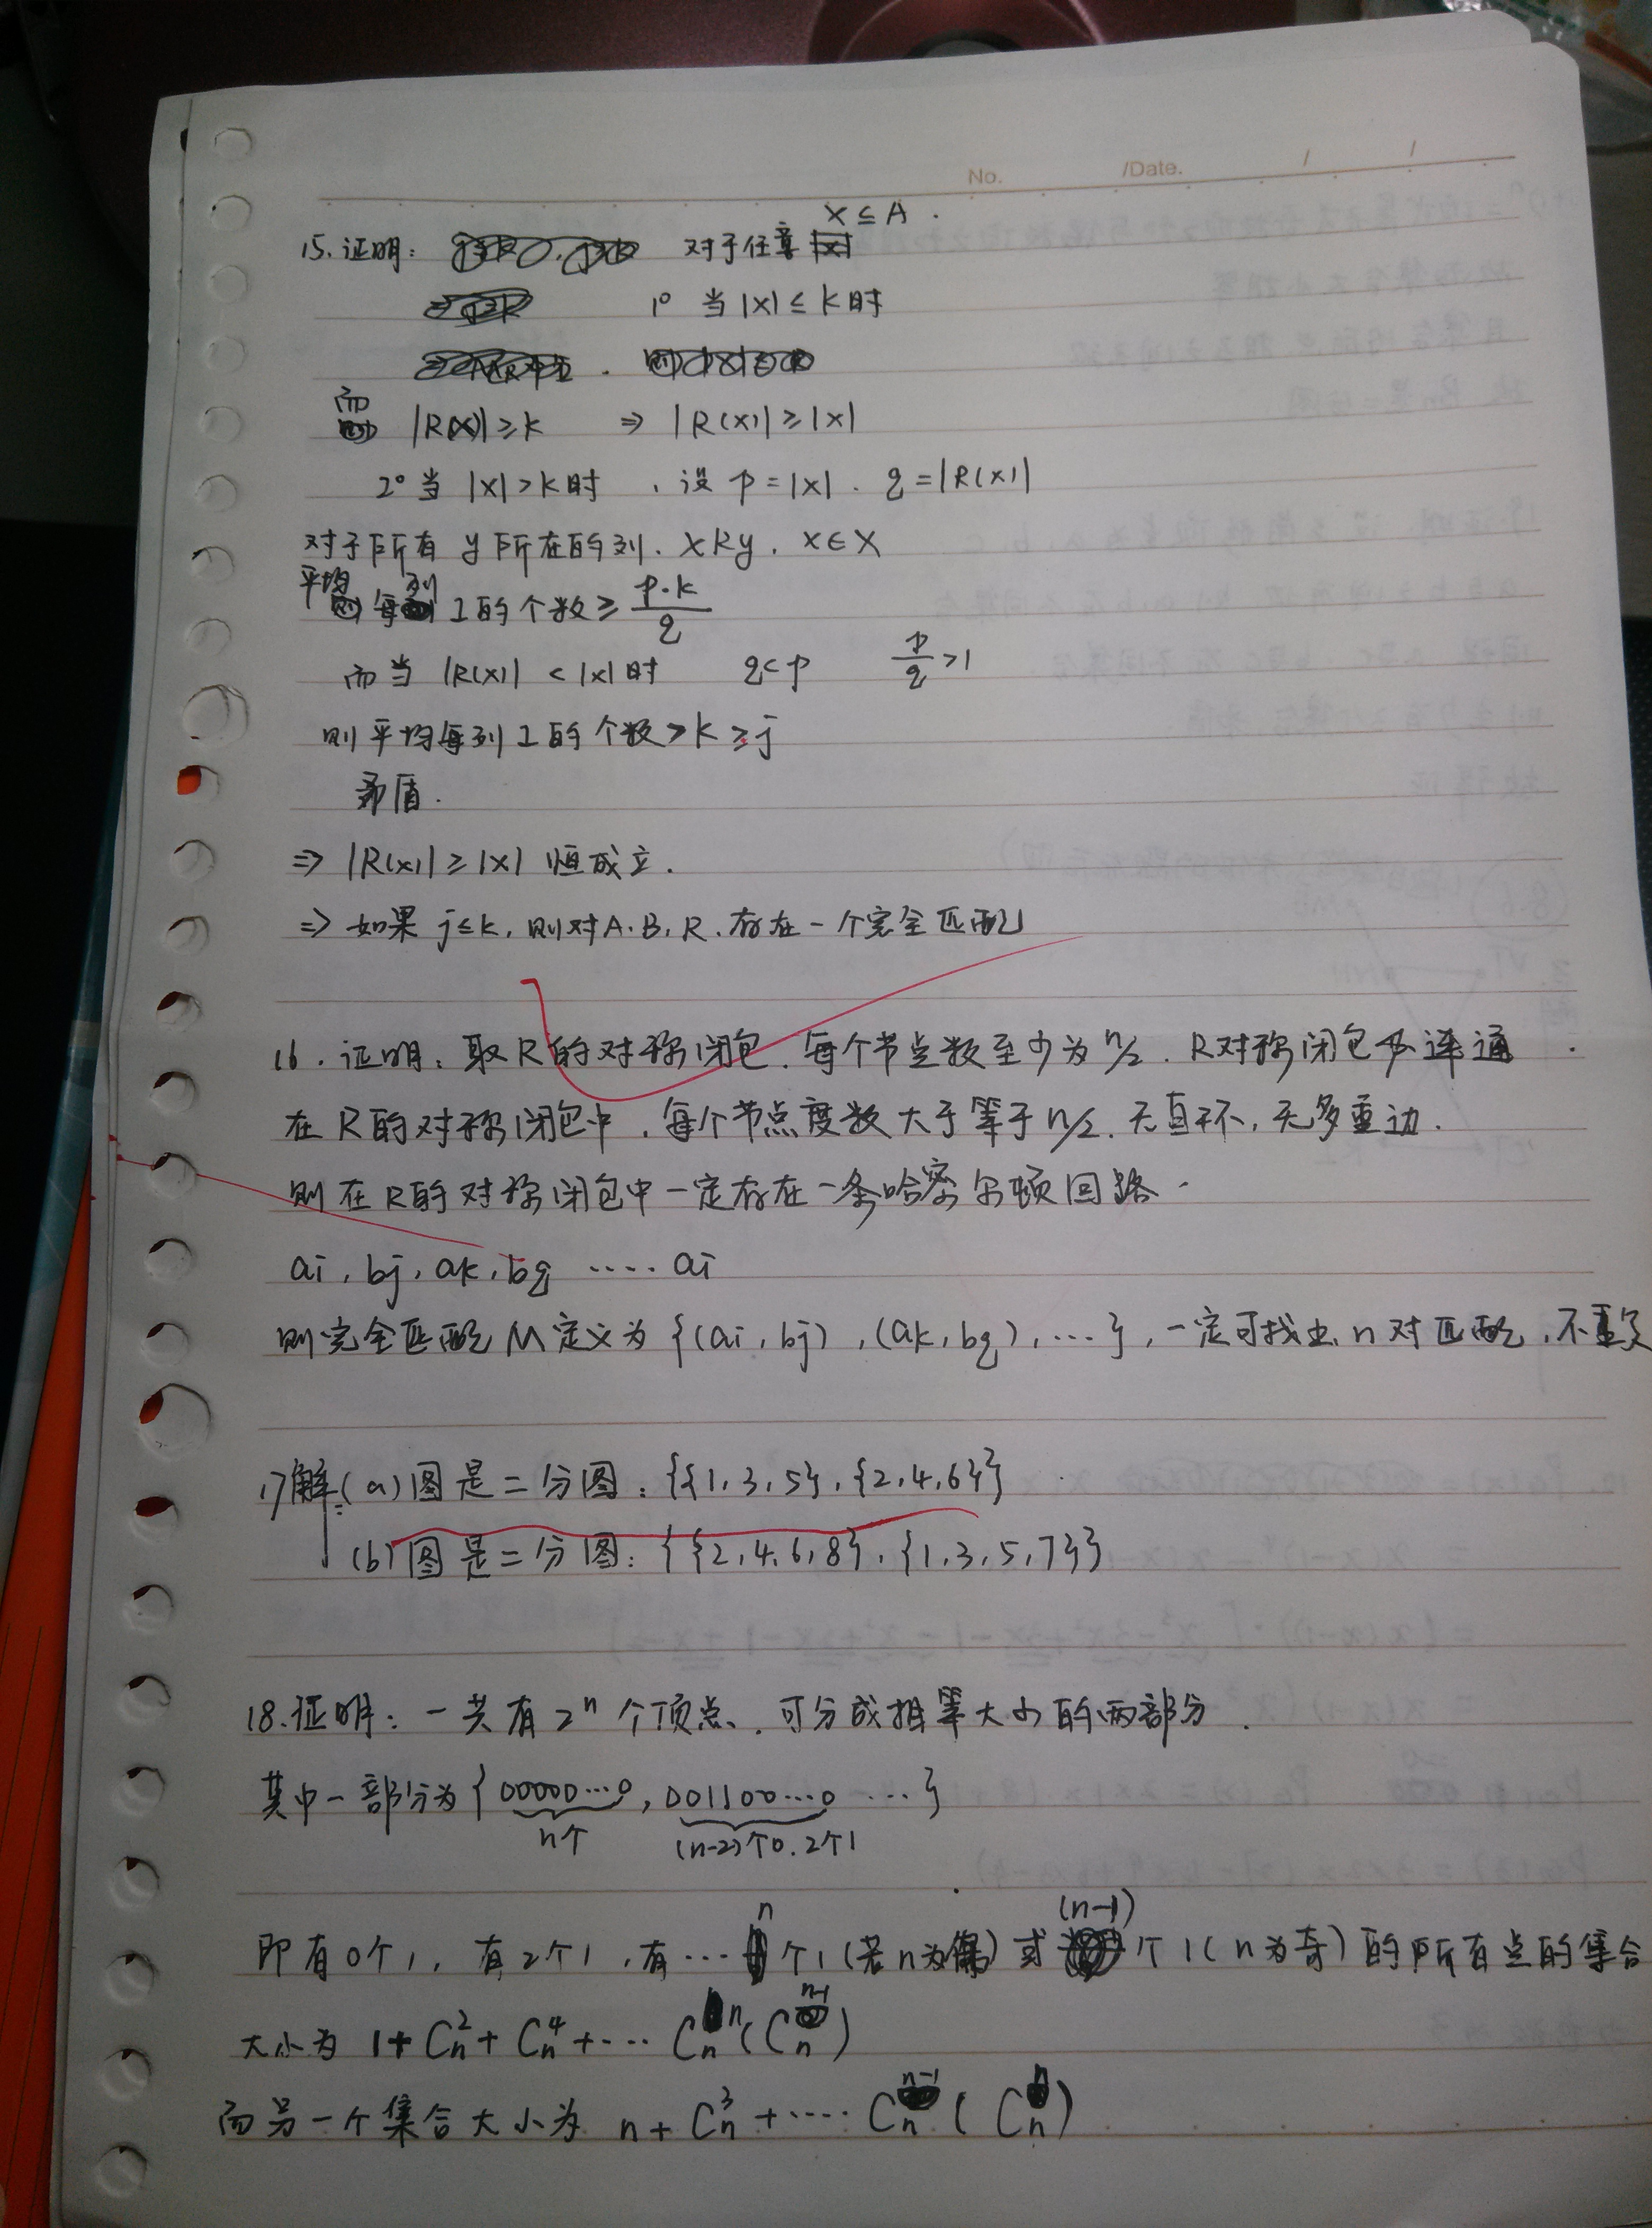 No. /Date. / /
X ⊆ A .
15. 证明: 对于任意
1° 当 |X| ≤ k 时
而 |R(X)| ≥ k ⇒ |R(X)| ≥ |X|
2° 当 |X| > k 时 , 设 p = |X| . q = |R(X)|
对于所有 y 所在的列. xRy. x∈X
平均每列 1 的个数 ≥ p·k/q
而当 |R(X)| < |X| 时 q < p p/q > 1
则平均每列 1 的个数 > k ≥ j
矛盾.
⇒ |R(X)| ≥ |X| 恒成立.
⇒ 如果 j ≤ k, 则对 A. B. R. 存在一个完全匹配
16. 证明: 取 R 的对称闭包. 每个节点数至少为 n/2. R对称闭包 连通
在 R 的对称闭包中, 每个节点度数大于等于 n/2. 无自环, 无多重边.
则在 R 的对称闭包中一定存在一条哈密尔顿回路.
ai, bj, ak, bq ····· ai
则完全匹配 M 定义为 {(ai, bj), (ak, bq), ...}, 一定可找出 n 对匹配, 不重复
17 解: (a) 图是二分图: {{1, 3, 5}, {2, 4, 6}}
(b) 图是二分图: {{2, 4, 6, 8}, {1, 3, 5, 7}}
18. 证明: 一共有 2^n 个顶点. 可分成相等大小的两部分.
其中一部分为 {00000···0, 001100···0 ···}
n个 (n-2)个0. 2个1
即有0个1, 有2个1, 有··· n 个1 (若n为偶) 或 (n-1) 个1 (n为奇) 的所有点的集合
大小为 1 + C_n^2 + C_n^4 + ··· C_n^n (C_n^{n-1})
而另一个集合大小为 n + C_n^3 + ···· C_n^{n-1} (C_n^n)